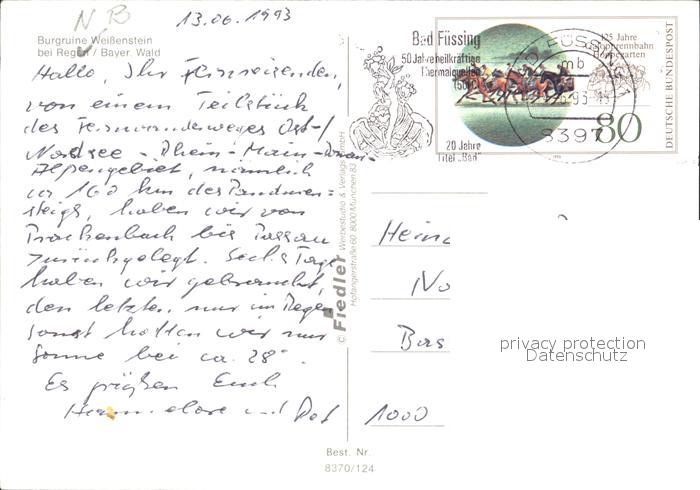 N B
13.06.1993
Burgruine Weißenstein
bei Regen / Bayer. Wald
Hallo, Ihr Fernreisenden,
von einem Teilstück
des Fernwanderweges Ost-/
Nordsee - Rhein-Main-Donau-
Alpengebiet, nämlich
ca 160 km des Pandurensteigs, haben wir von
bis Passau
zurückgelegt. Sechs Tage
haben wir gebraucht,
den letzten nur im Regen
sonst hatten wir nur
Sonne bei ca. 28°.
Es grüßen Euch
Hannelore und
© Fiedler Werbestudio & Verlags GmbH
Hofangerstraße 60 8000 München 83
Bad Füssing
50 Jahre heilkräftige
Thermalquellen
20 Jahre
Titel „Bad"
BAD FÜSSING 1
mb
8397
125 Jahre
Galopprennbahn
Hoppegarten
80
DEUTSCHE BUNDESPOST
1000
privacy protection
Datenschutz
Best. Nr.
8370/124